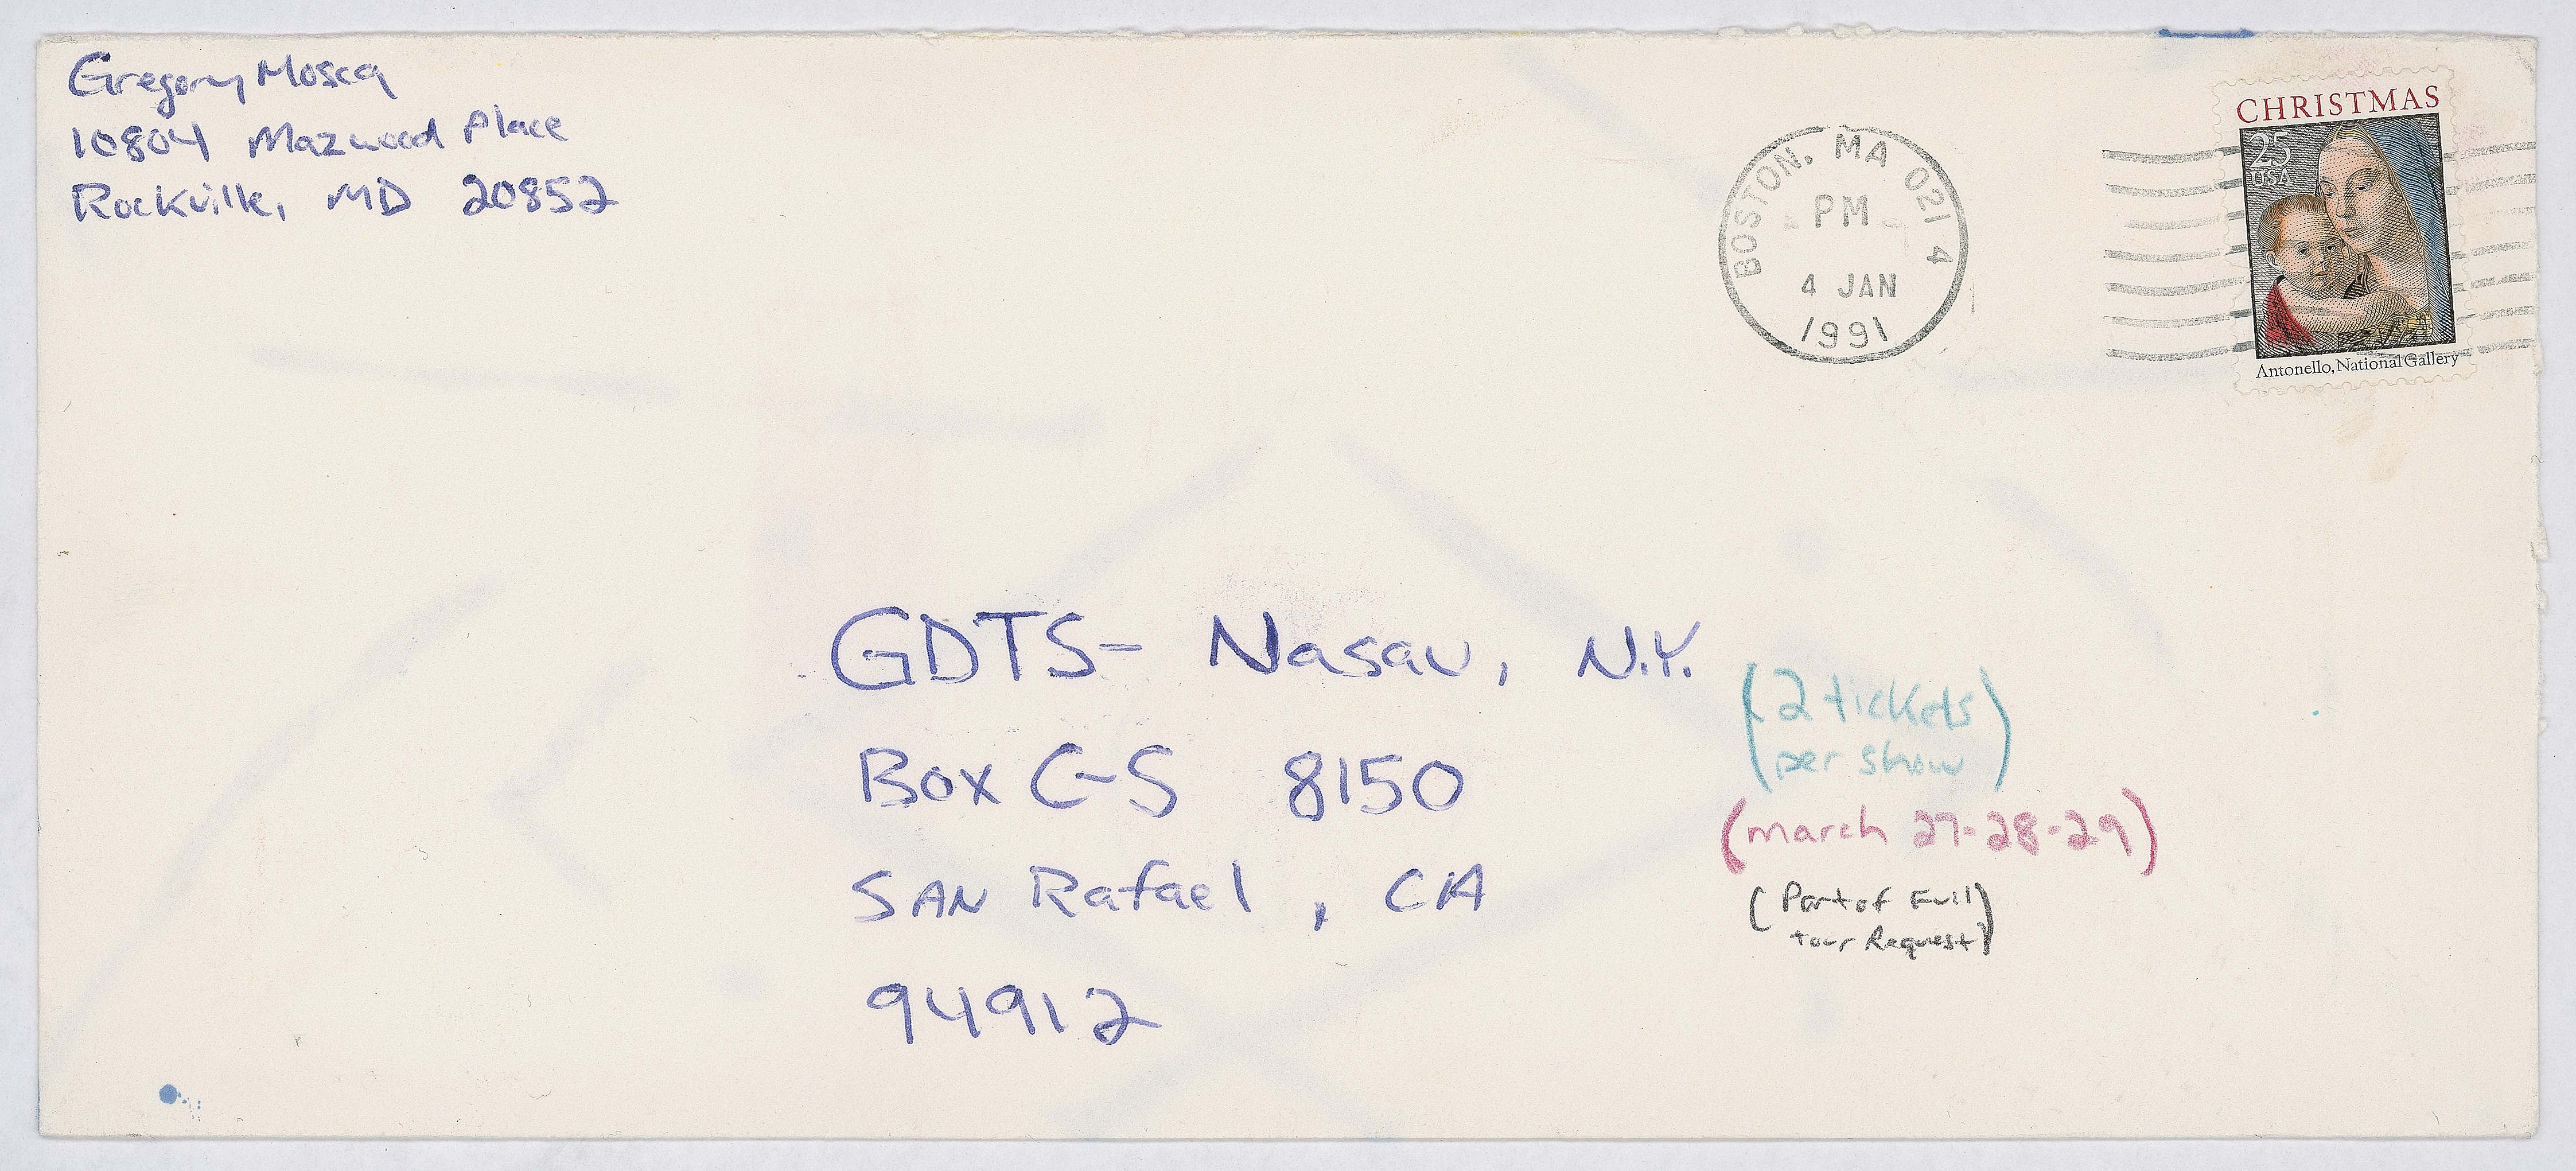 Gregory Mosca
10804 Mazwood Place
Rockville, MD 20852
BOSTON, MA 021 4
PM
4 JAN
1991
CHRISTMAS
25
USA
Antonello, National Gallery
GDTS- Nasau, N.Y.
Box C-S 8150
SAN Rafael, CA
94912
(2 tickets
per show)
(march 27-28-29)
(Part of Full
tour Request)